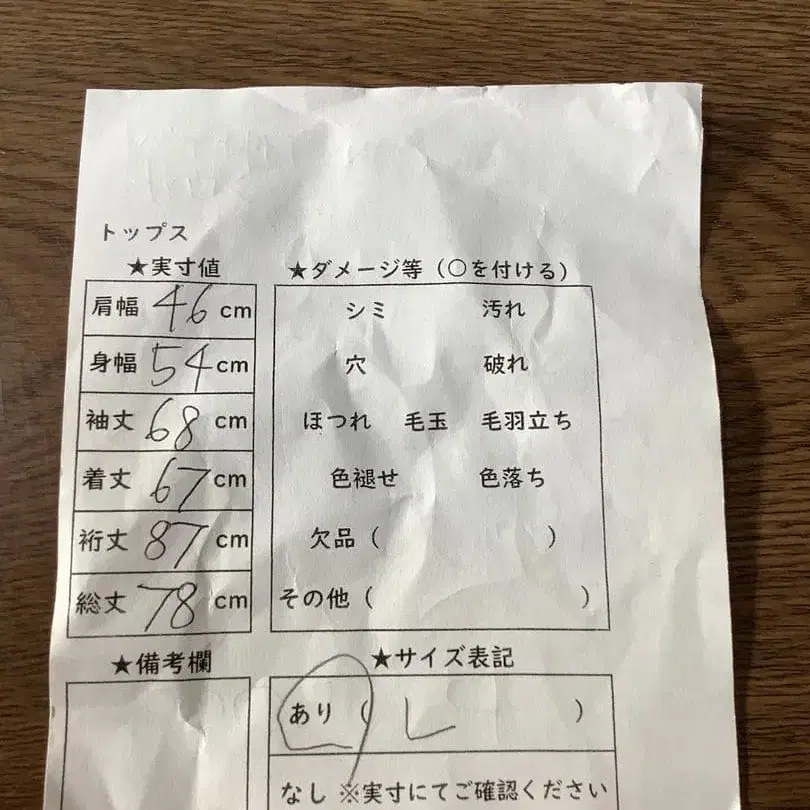 トップス
★実寸値
肩幅 46 cm
身幅 54 cm
袖丈 68 cm
着丈 67 cm
裄丈 87 cm
総丈 78 cm
★ダメージ等(○を付ける)
シミ 汚れ
穴 破れ
ほつれ 毛玉 毛羽立ち
色褪せ 色落ち
欠品( )
その他( )
★備考欄
★サイズ表記
あり( L )
なし ※実寸にてご確認ください